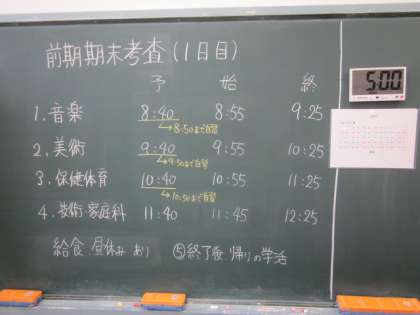 前期期末考査(1日目)
予 始 終
1.音楽 8:40 8:55 9:25
→8:50まで自習
2.美術 9:40 9:55 10:25
→9:50まで自習
3.保健体育 10:40 10:55 11:25
→10:50まで自習
4.技術・家庭科 11:40 11:45 12:25
給食、昼休みあり ⑤終了後、帰りの学活
5:00